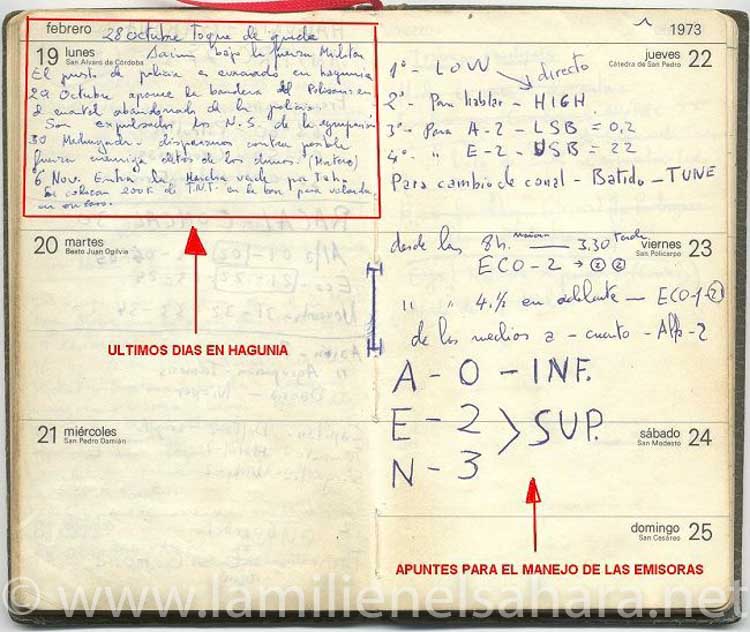 febrero
28 octubre Toque de queda
19 lunes
San Alvaro de Córdoba
bajo la fuerza Militar
El puesto de policia es evacuado en hagunia
29 Octubre aparece la bandera del Polisario en
el cuartel abandonado de la policia
Son expulsados los N.S. de la agrupación
30 Madrugada - disparamos contra posible
fuerza enemiga detras de las dunas. (Matero)
6 Nov. Entra la Marcha verde por Tah.
Se colocan 200 K de T.N.T. en la base para volarla,
en su caso.
20 martes
Beato Juan Ogilvie
ULTIMOS DIAS EN HAGUNIA
21 miércoles
San Pedro Damián
1973
jueves 22
Cátedra de San Pedro
1º - LOW
directo
2º - Para hablar - HIGH
3º - Para A-2 - LSB = 0,2
4º " E-2 - USB = 22
Para cambio de canal - Batido - TUNE
viernes 23
San Policarpo
desde las 8h. mañana 3.30 tarde
ECO-2 → 2 2
" " 4.½ en adelante - ECO-1-2
de los medios a - cuarto - Alfa-2
A - 0 - INF.
E - 2
N - 3
> SUP.
sábado 24
San Modesto
domingo 25
San Cesáreo
APUNTES PARA EL MANEJO DE LAS EMISORAS
© www.lamilienelsahara.net